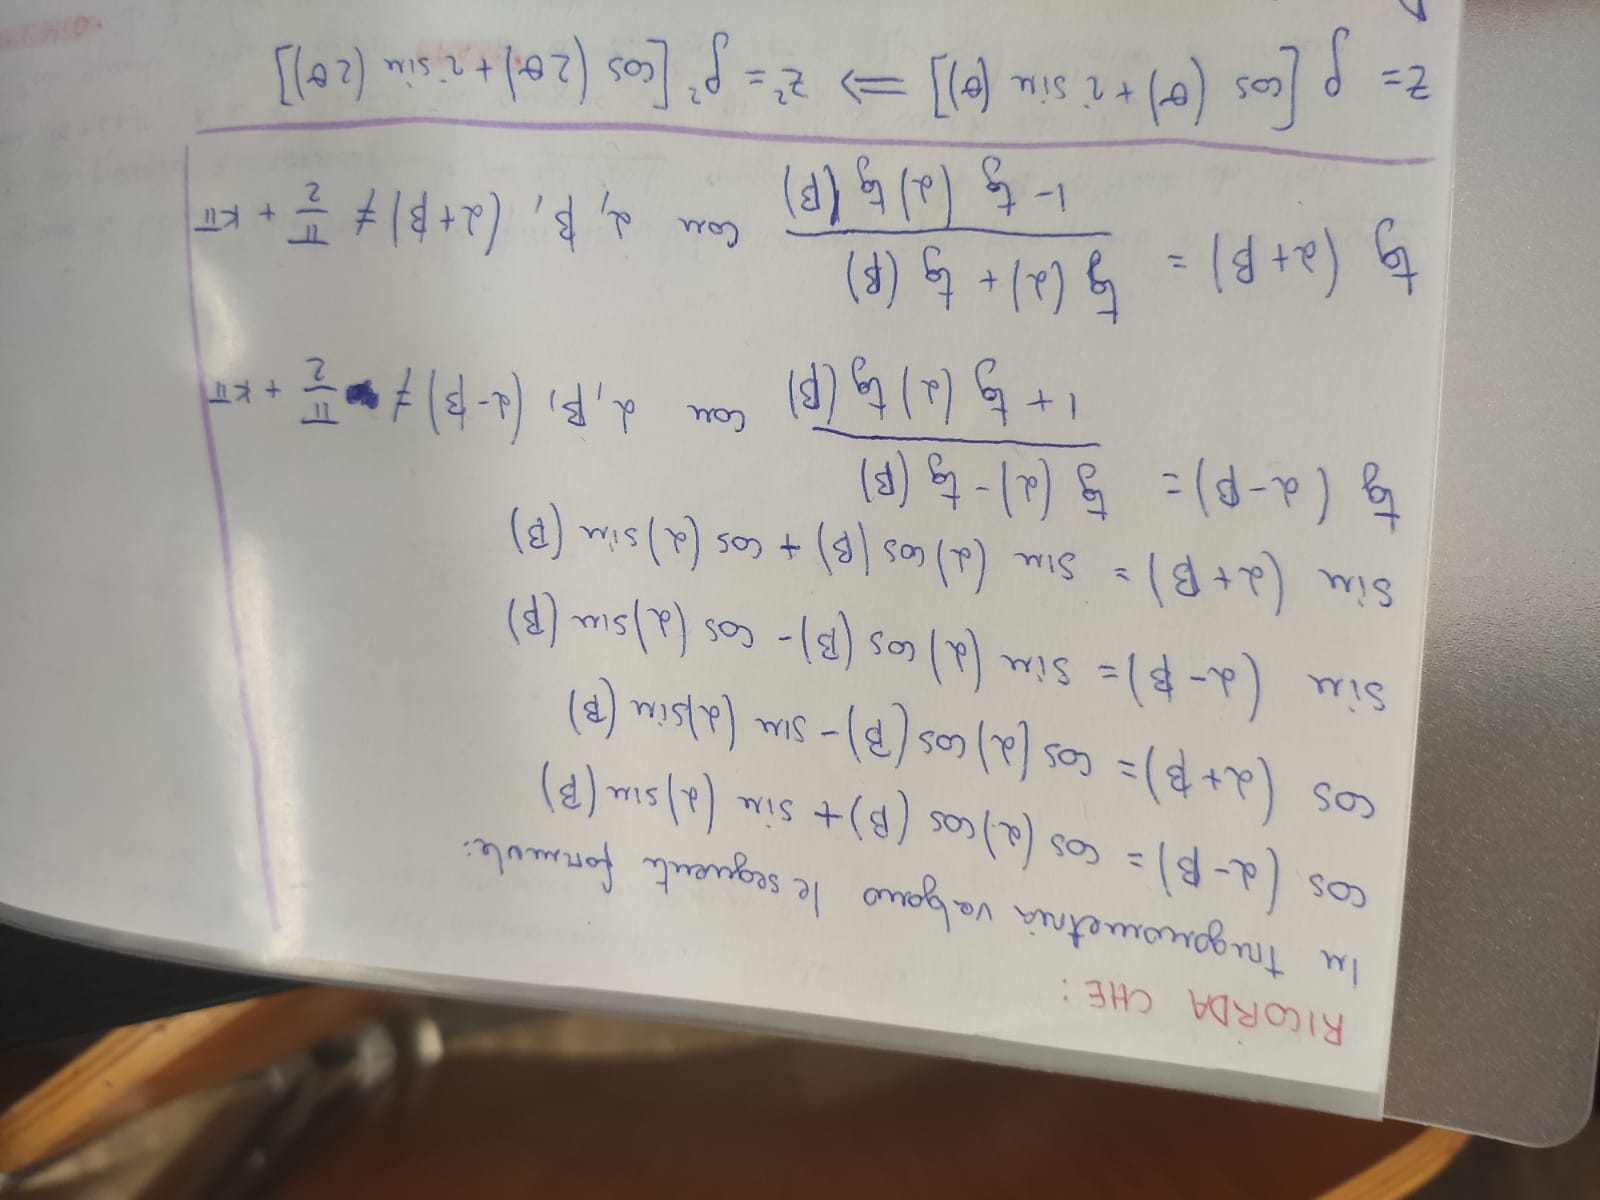 RICORDA CHE:
In trigonometria valgono le seguenti formule:
cos (α-β) = cos (α) cos (β) + sin (α) sin (β)
cos (α+β) = cos (α) cos (β) - sin (α) sin (β)
sin (α-β) = sin (α) cos (β) - cos (α) sin (β)
sin (α+β) = sin (α) cos (β) + cos (α) sin (β)
tg (α-β) = tg (α) - tg (β) / 1 + tg (α) tg (β) con α, β, (α-β) ≠ π/2 + kπ
tg (α+β) = tg (α) + tg (β) / 1 - tg (α) tg (β) con α, β, (α+β) ≠ π/2 + kπ
z = ρ [cos (θ) + i sin (θ)] => z² = ρ² [cos (2θ) + i sin (2θ)]